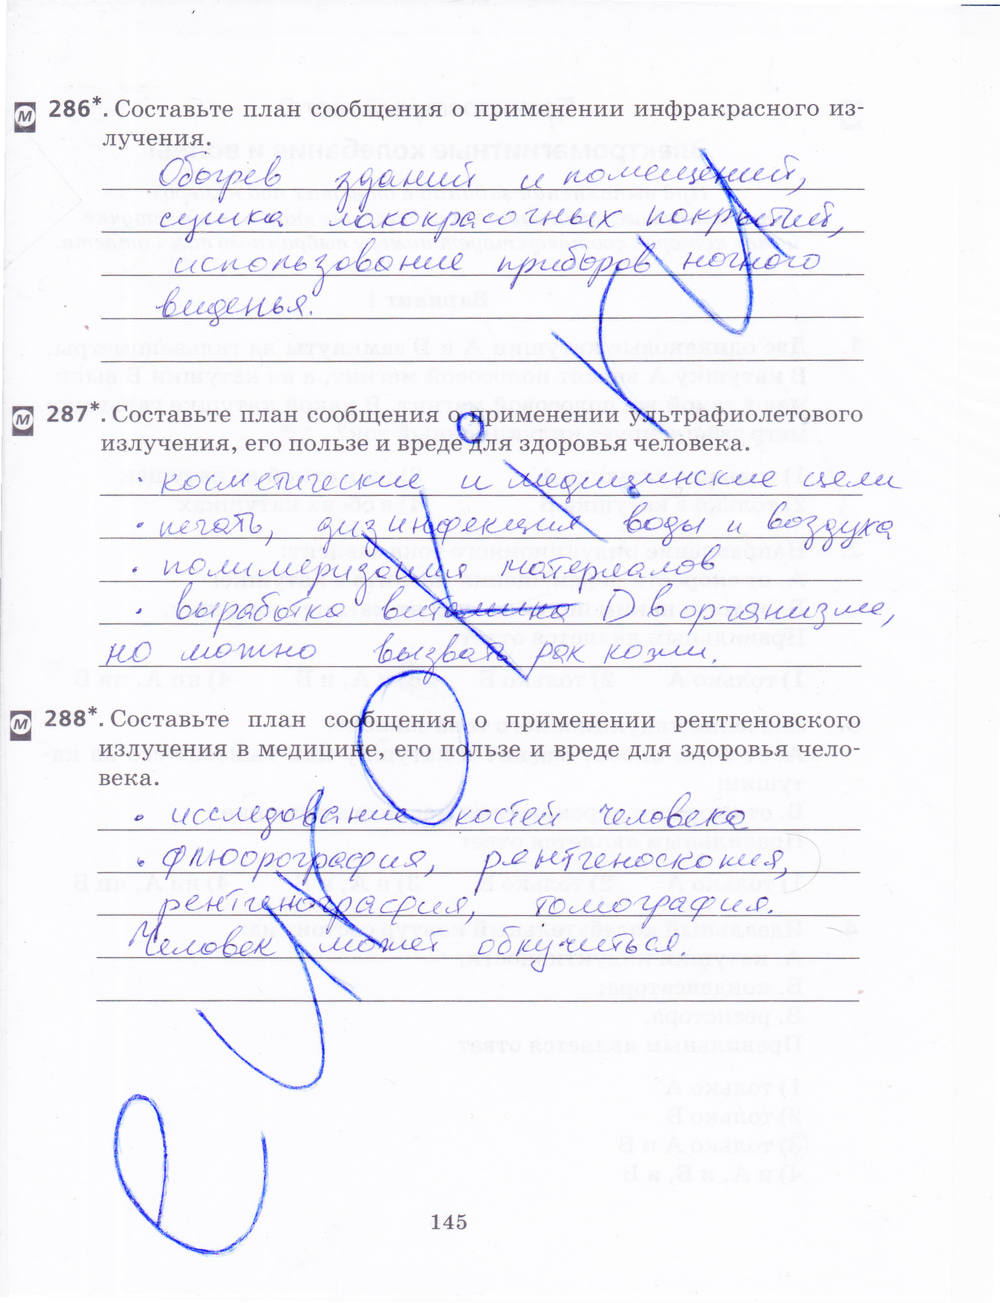 286*. Составьте план сообщения о применении инфракрасного из-
лучения.
Обогрев зданий и помещений,
сушка лакокрасочных покрытий,
использование приборов ночного
виденья.
287*. Составьте план сообщения о применении ультрафиолетового
излучения, его пользе и вреде для здоровья человека.
· косметические и медицинские цели
· печать, дизинфекция воды и воздуха
· полимеризация материалов
· выработка витамина D в организме,
но можно вызвать рак кожи.
288*. Составьте план сообщения о применении рентгеновского
излучения в медицине, его пользе и вреде для здоровья чело-
века.
· исследование костей человека
· флюорография, рентгеноскопия,
рентгенография, томография.
Человек может облучиться.
145